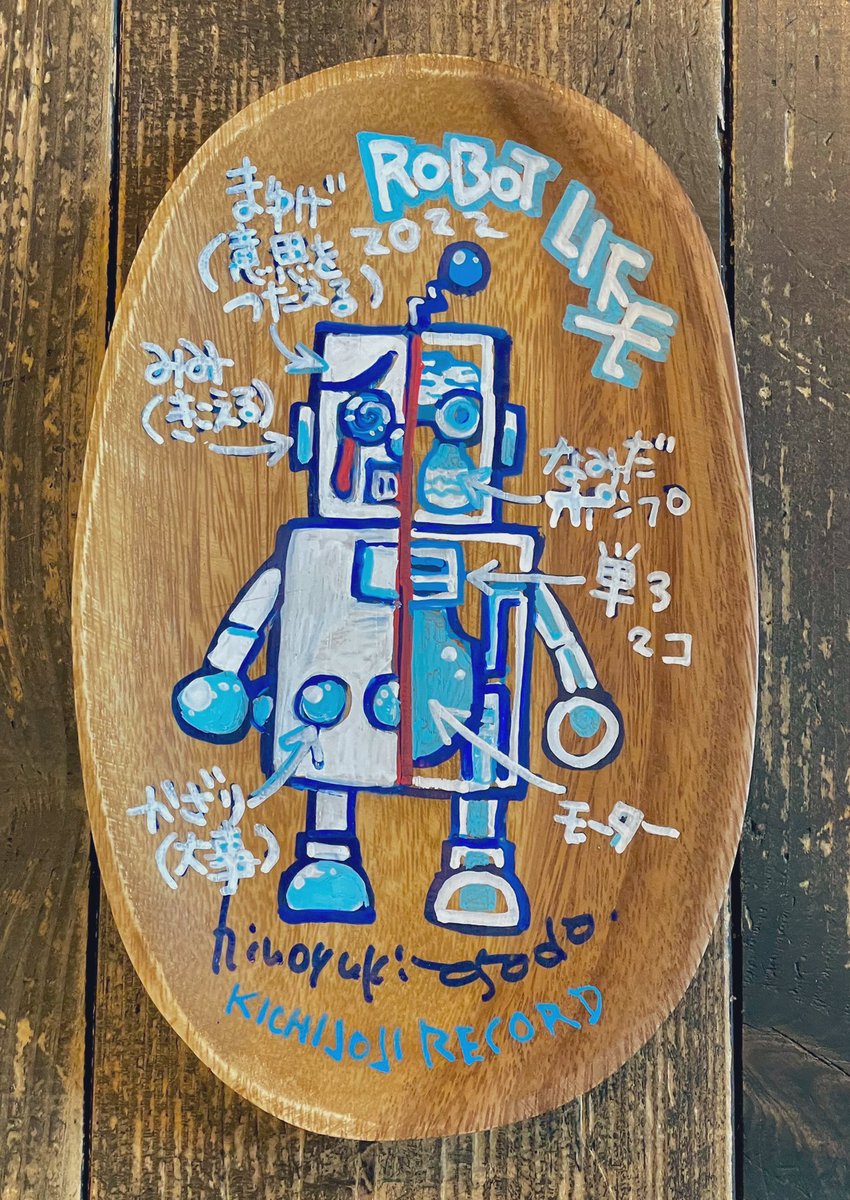 ROBOT LIFE
2022
まゆげ
(意思を
つたえる)
みみ
(きこえる)
なみだ
ポンプ
単3
2コ
かざり
(大事)
モーター
KICHIJOJI RECORD